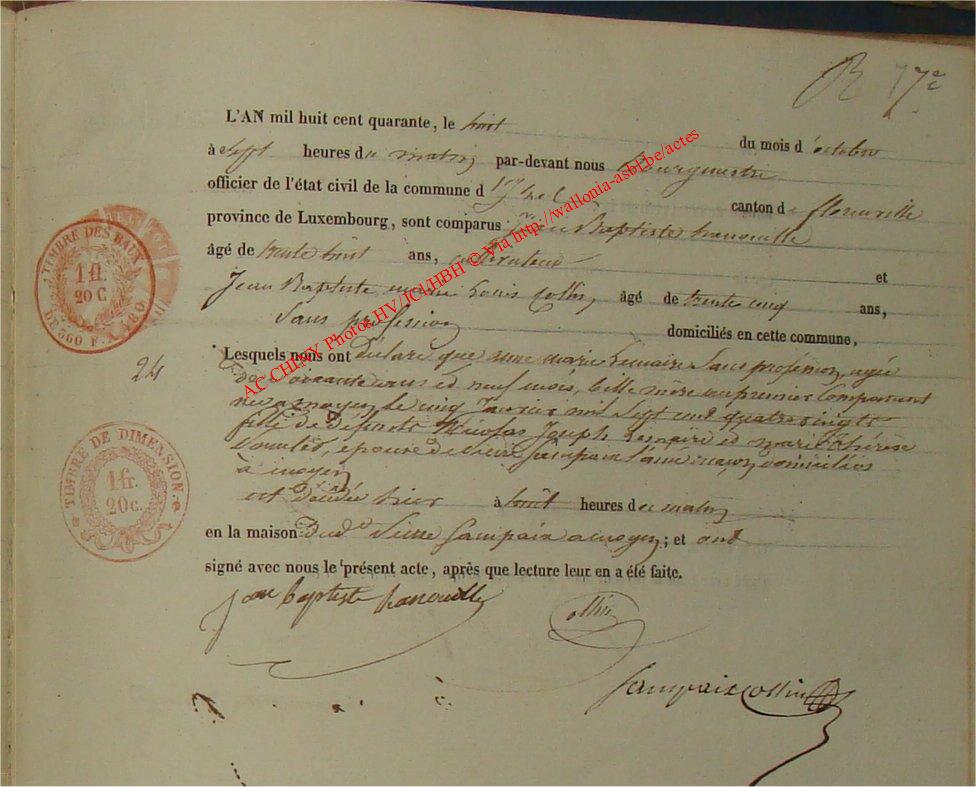 R 77e
L'AN mil huit cent quarante, le huit du mois d'octobre
à sept heures du matin par-devant nous Bourgmestre
officier de l'état civil de la commune d'Izel canton de florenville
province de Luxembourg, sont comparus Jean Baptiste hanouille
âgé de trente huit ans, cultivateur et
Jean Baptiste Louis Collin, âgé de trente cinq ans,
Sans profession domiciliés en cette commune,
24
Lesquels nous ont déclaré que marie Lemaire Sans profession, agée
de soixante ans et neuf mois, belle mère au premier Comparant
née a moyen, le cinq Janvier mil Sept cent quatre vingts
fille de défunts Nicolas Joseph Lemaire et marie thérèse
épouse de Pierre Sampaix l'ainé domiciliés
à moyen
est décédée hier à huit heures du matin
en la maison dud. Pierre Sampaix a moyen; et ont
signé avec nous le présent acte, après que lecture leur en a été faite.
Jean baptiste hanouille
Collin
Sampaix Collin
TIMBRE DES BAUX
1 fl.
20 C.
DE 360 F. A 480.
TIMBRE DE DIMENSION.
1 fr.
20 c.
AC CHINY Photos HV/JCV/HBH © Via http://wallonia-asbl.be/actes